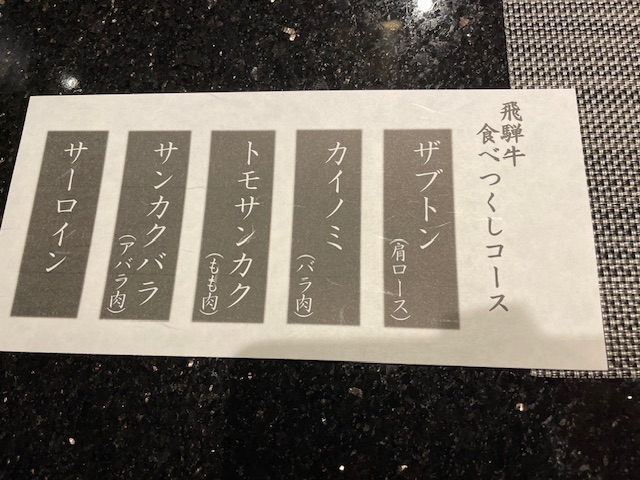 飛騨牛
食べつくしコース
ザブトン
(肩ロース)
カイノミ
(バラ肉)
トモサンカク
(もも肉)
サンカクバラ
(アバラ肉)
サーロイン